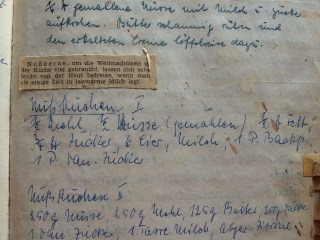 gemahlene Nüsse mit Milch u. Zucker
aufkochen. Butter schaumig rühren und
den erkalteten Creme löffelweise dazu.
Nußkerne, um die Weihnachtszeit
der Küche viel gebraucht, lassen sich sehr
leicht von der Haut befreien, wenn man
sie einige Zeit in lauwarme Milch legt.
Nußkuchen I
Mehl, Nüsse (gemahlen) Fett,
Zucker, 6 Eier, Milch, 1 P. Backp.
1 P. Van. Zucker
Nuß Kuchen II
250g Nüsse, 250g Mehl, 125g Butter, Zucker
1 Van. Zucker, 1 Tasse Milch,